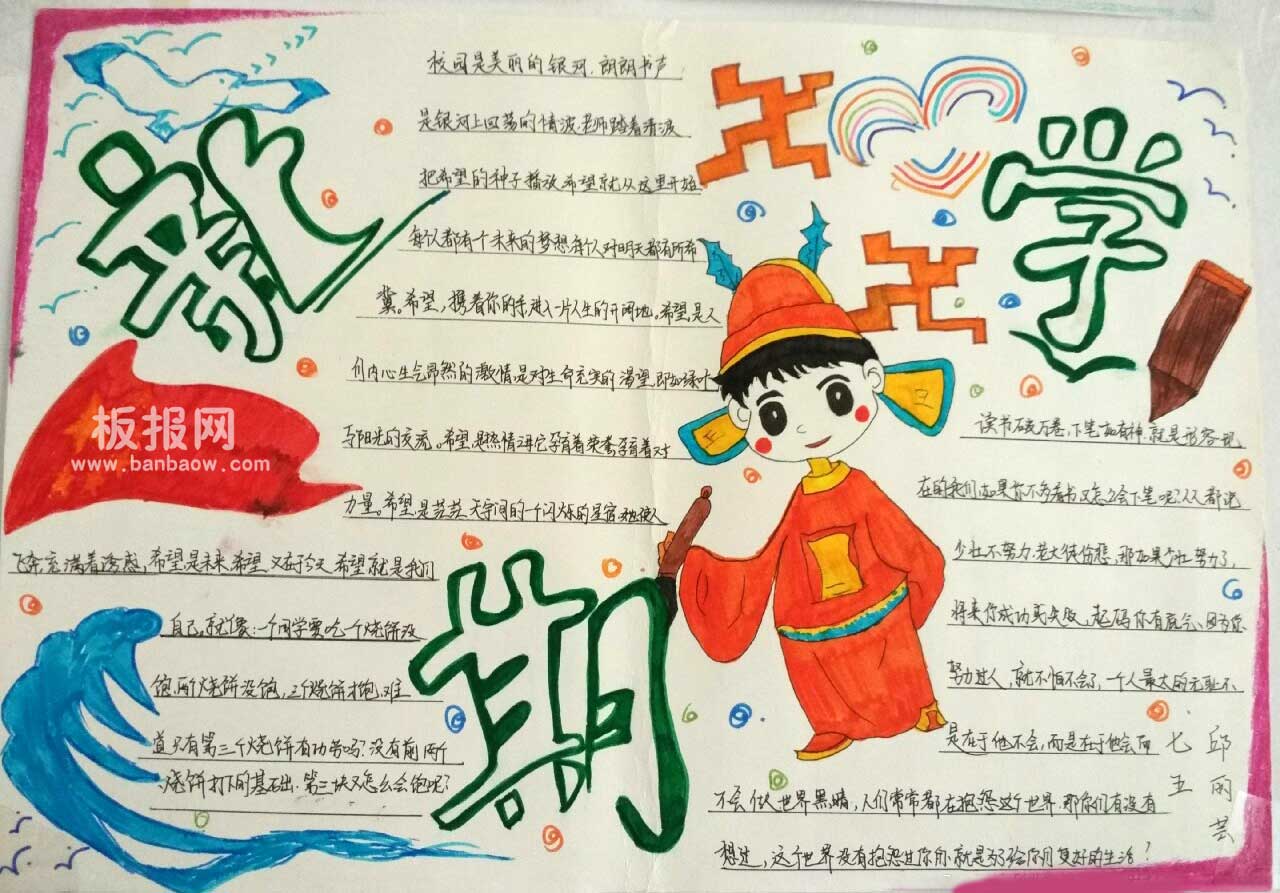 新学期
校园是美丽的银河,朗朗书声
是银河上回荡的情波老师踏着清波
把希望的种子播放希望就从这里开始
每个人都有个未来的梦想每个人对明天都有所希
冀。希望,携着你的手,进入一片人生的开阔地。希望是人
们内心生气昂然的激情,是对生命充实的渴望,即如绿叶
与阳光的交流。希望是热情,孕育着对
力量。希望是芸芸天宇间的一个闪烁的星宿,她使人
飞奔,充满着诱惑,希望是未来,希望又在今天,希望就是我们
自己。就像:一个同学要吃一个烧饼没
饱,两个烧饼没饱,三个烧饼才饱,难
道只有第三个烧饼有功劳吗?没有前两个
烧饼打下的基础.第三块又怎么会饱呢?
读书破万卷,下笔如有神.就是形容现
在的我们,如果你不多看书又怎么会下笔呢?人人都说
少壮不努力,老大徒伤悲,那如果少壮努力了,
将来你成功或失败,起码你有底气、因为你
努力过人,就不怕不会了,一个人最大的无耻不
是在于他不会,而是在于他会而
不会做,世界黑暗,人们常常都在抱怨这个世界.那你们有没有
想过,这个世界没有抱怨过你们,就是为了给你们更好的生活?
七五
邱丽芸
板报网
www.banbaow.com